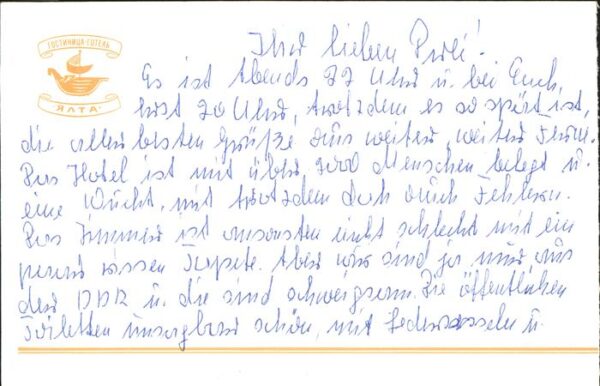 ГОСТИНИЦА-ГОТЕЛЬ
ЯЛТА
Ihr lieben Drei!
Es ist Abends 22 Uhr u. bei Euch
erst 20 Uhr, trotzdem es so spät ist,
die allerbesten Grüße aus weiter, weiter Ferne.
Das Hotel ist mit über 2000 Menschen belegt u.
eine Wucht, mit trotzdem doch auch Fehlern.
Das Zimmer ist ansonsten nicht schlecht mit ein
wissen Tapete. Aber wir sind ja nur aus
der DDR u. die sind schweigsam. Die öffentlichen
Toiletten unsagbar schön, mit Ledersesseln u.